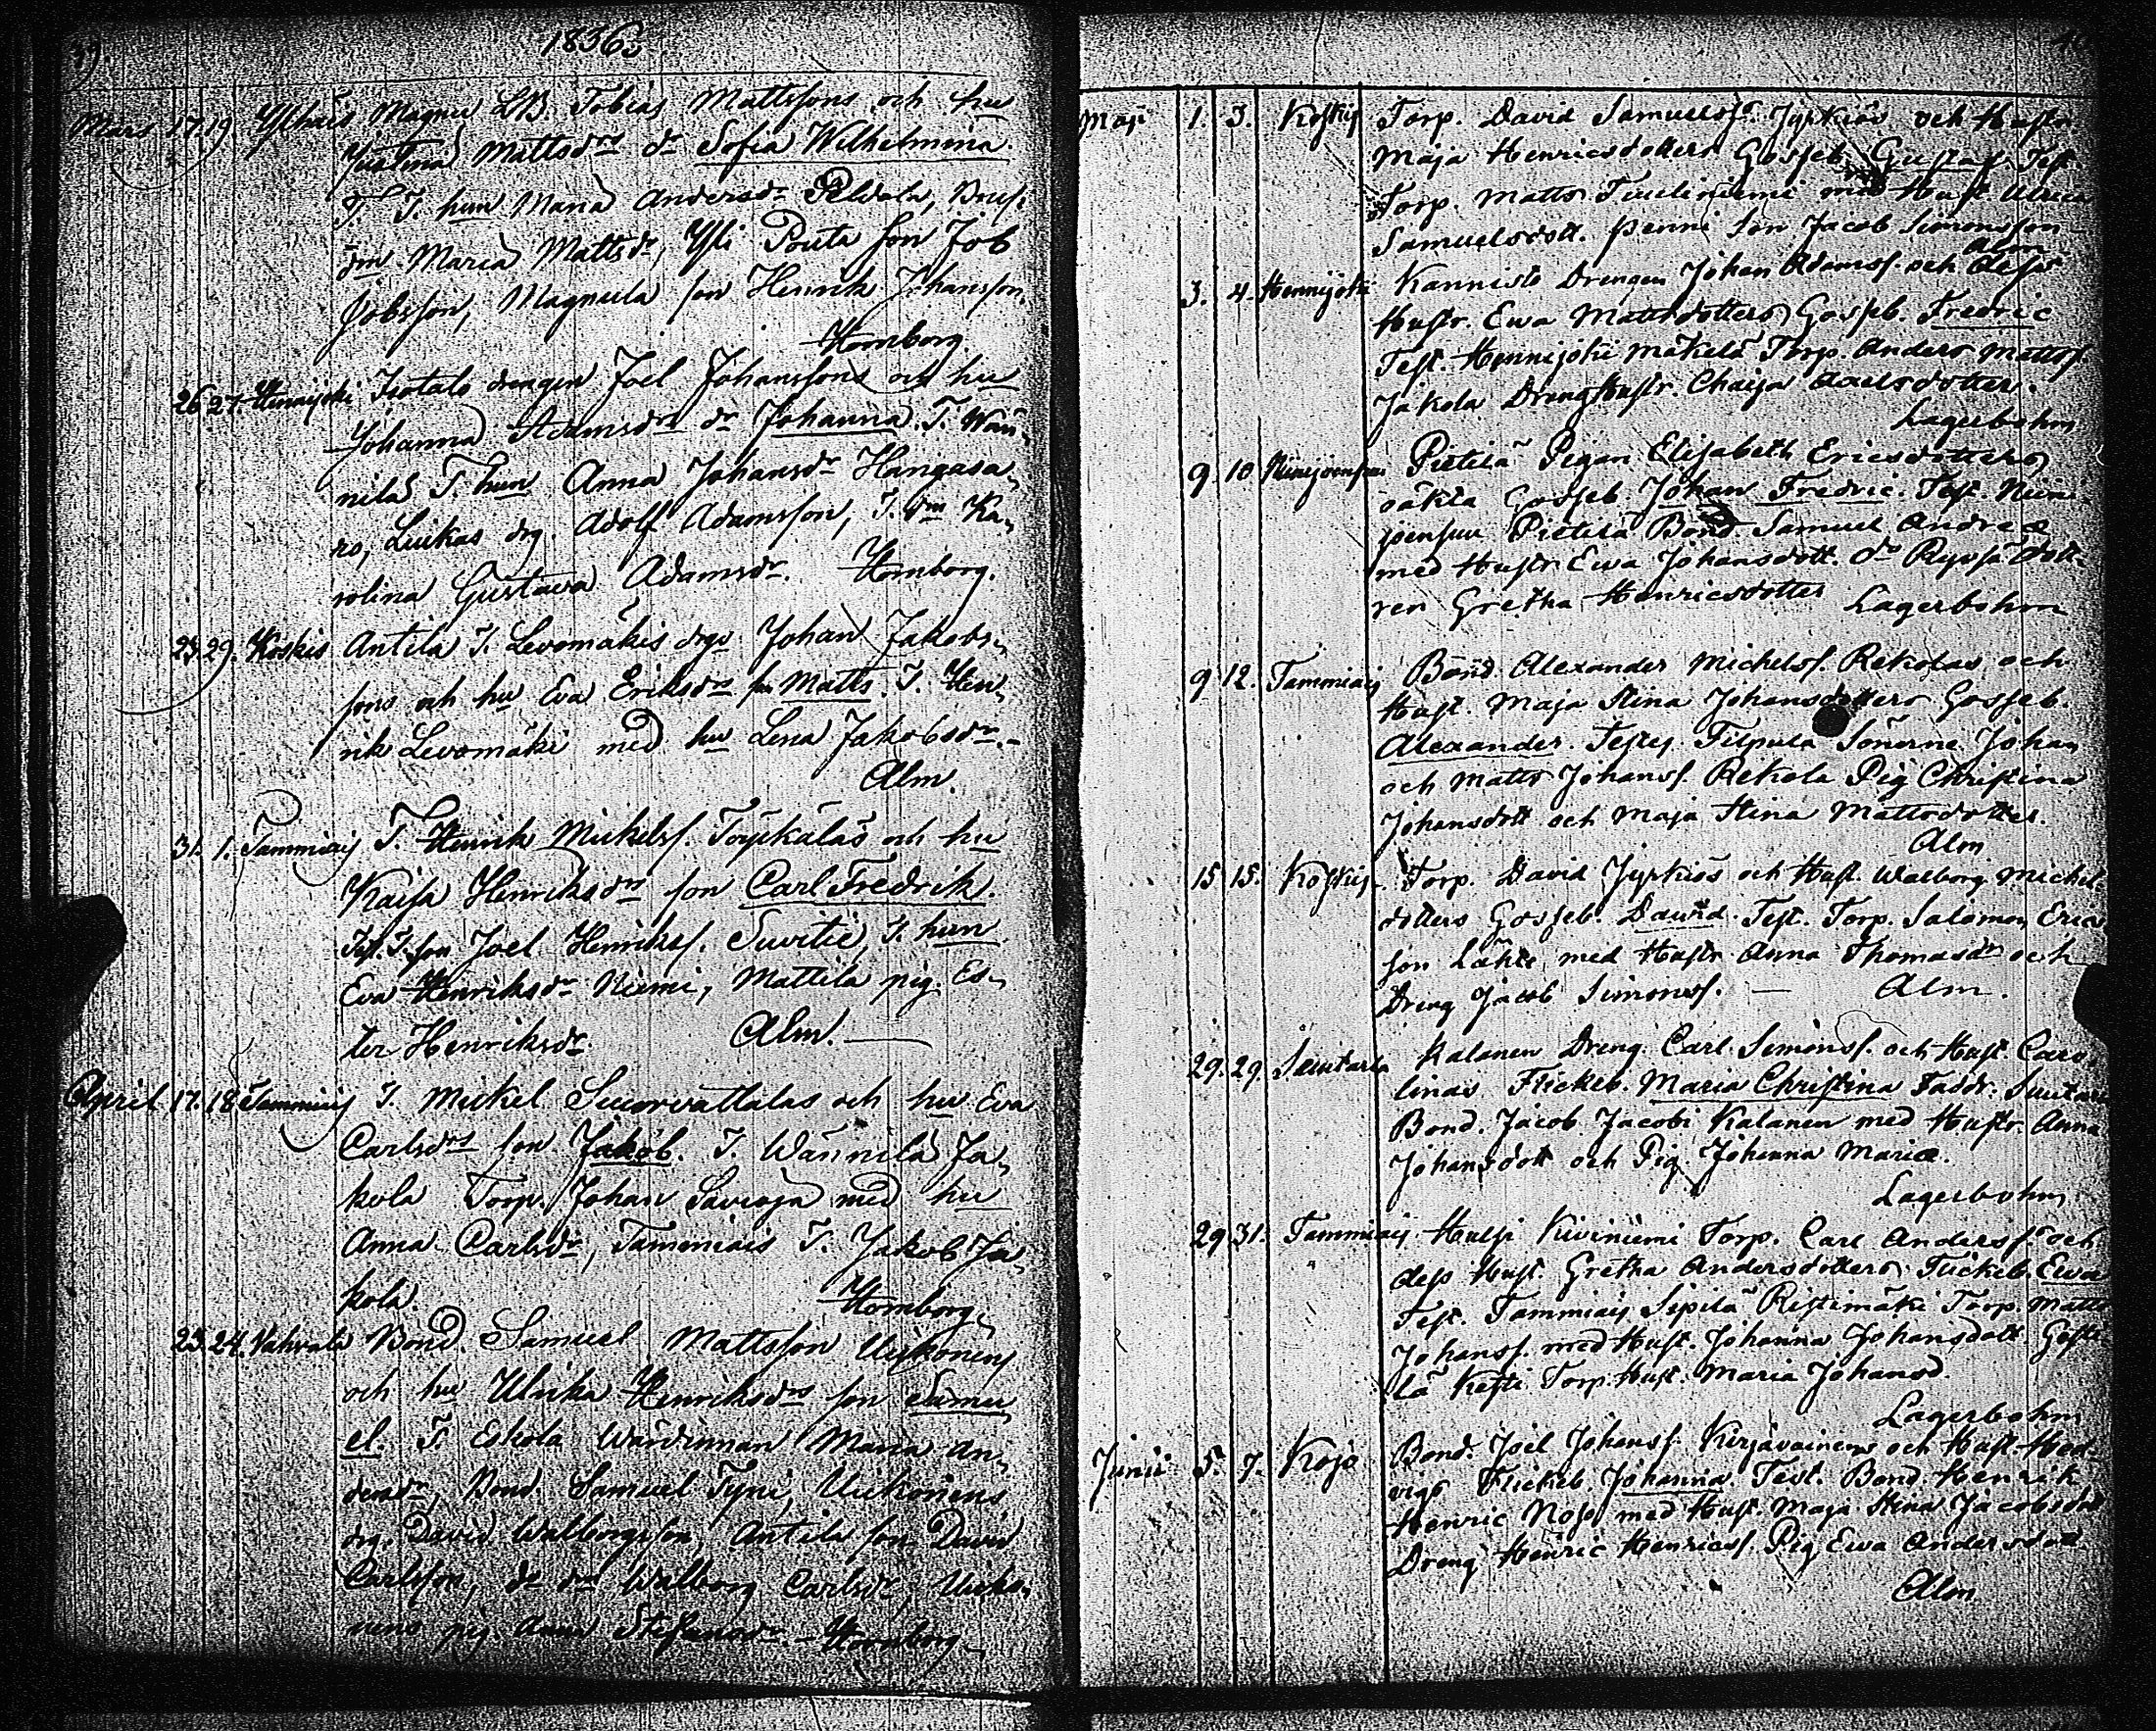 1836
Mars 17. 19. Magnu LB. Tobias Mattssons och hu
Justina Mattsdrs dr Sofia Wilhelmina.
T. T. hun Maria Andersdr Peldola,
Maria Mattsdr, Yli Pouta son Job
Jobsson, Magnula son Henrik Johansson.
Hornborg.
26. 27. Hennijoki Isotalo drengen Joel Johanssons och hu
Johanna Adamsdrs dr Johanna. T. Wän-
nilä T. hun Anna Johansdr Hangasa-
ro, Luikas drg. Adolf Adamsson, T. dm Ka-
rolina Gustava Adamsdr. Hornborg.
23. 29. Koskis Antila T. Levomäkis drgs Johan Jakobs-
sons och hu Eva Eriksdrs son Matts. T. Hen-
rik Levomäki med hu Lena Jakobsdr.
Alm.
31. 1. Tammiais T. Henrik Mickelss. Töyckäläs och hu
Kaisa Henriksdrs son Carl Fredrik.
Test. T. son Joel Henrikss. Suvitie, T. hun
Eva Henriksdr Niemi, Mattila pig. Es-
ter Henriksdr. Alm.
April 17. 18. Tammiais T. Mickel Suorvattalas och hu Eva
Carlsdrs son Jakob. T. Wännilä Ja-
kola Torp. Johan Savioja med hu
Anna Carlsdr, Tammiais T. Jakob Ja-
kola. Hornborg.
23. 24. Vahvala Bond. Samuel Mattsson Uickonens
och hu Ulrika Henriksdrs son Samu-
el. T. Eskola Wärdinnan Maria An-
dersdr, Bond. Samuel Tyni, Uickonens
drg. David Walborgsson, Antila son David
Carlsson, dr Walborg Carlsdr, Uicko-
nens pig. Anna Stefansdr. Hornborg.
Maji 1. 3. Koskis Torp. David Samuelss. Jyrkiös och Hustr.
Maja Henricsdotters Gosseb. Gustaf. Test.
Torp. Matts Tuuliniemi med Hust. Ulrica
Samuelsdott. Penni Son Jacob Simonsson
Alm
3. 4. Hennijoki Kannisto Drengen Johan Adamss. och dess
Hustr. Ewa Mattsdotters Gossb. Fredric
Test. Hennijoki Mäkelä Torp. Anders Mattss.
Jakola Dreng Hustr. Chaisa Axelsdotter.
Lagerbohm
9. 10. Niinijoensuu Pietilä Pigan Elisabeth Ericsdotters
oäkta Gosseb. Johan Fredric. Test. Niini-
joensuu Pietilä Bond. Samuel Andreæ
med Hustr. Ewa Johansdott. do Dott-
ren Gretha Henricsdotter Lagerbohm
9. 12. Tammiais Bond. Alexander Michelss. Rekolas och
Hust. Maja Stina Johansdotters Gosseb.
Alexander. Testes Filpula Sönerne Johan
och Matts Johanss. Rekola Pig. Christina
Johansdott. och Maja Stina Mattsdotter.
Alm
15. 15. Koskis Torp. David Jyrkiös och Hust. Walborg Michels-
dotters Gosseb. David. Test. Torp. Salomon Erics-
son Lähte med Hustr. Anna Thomasdr och
Dreng Jacob Simonss. Alm.
29. 29. Suutarla Kalanen Dreng Carl Simonss. och Hust. Caro-
linas Flickeb. Maria Christina Faddr. Suutarla
Bond. Jacob Jacobi Kalanen med Hustr. Anna
Johansdott och Pig. Johanna Mariæ.
Lagerbohm
29. 31. Tammiais Kiviniemi Torp. Carl Anderss. och
dess Hust. Gretha Andersdotters Flickeb. Ewa
Test. Tammiais Sipilä Ristimäki Torp. Matts
Johanss. med Hust. Johanna Johansdott.
lä Kesti Torp. Hust. Maria Johansd.
Lagerbohm
Junii 5. 7. Kojo Bond. Joel Johanss. Kirjavainens och Hust. Hed-
vigs Flickeb. Johanna. Test. Bond. Henrik
Henric med Hust. Maja Stina Jacobsdott
Dreng Henric Henricss. Pig. Ewa Andersdott
Alm